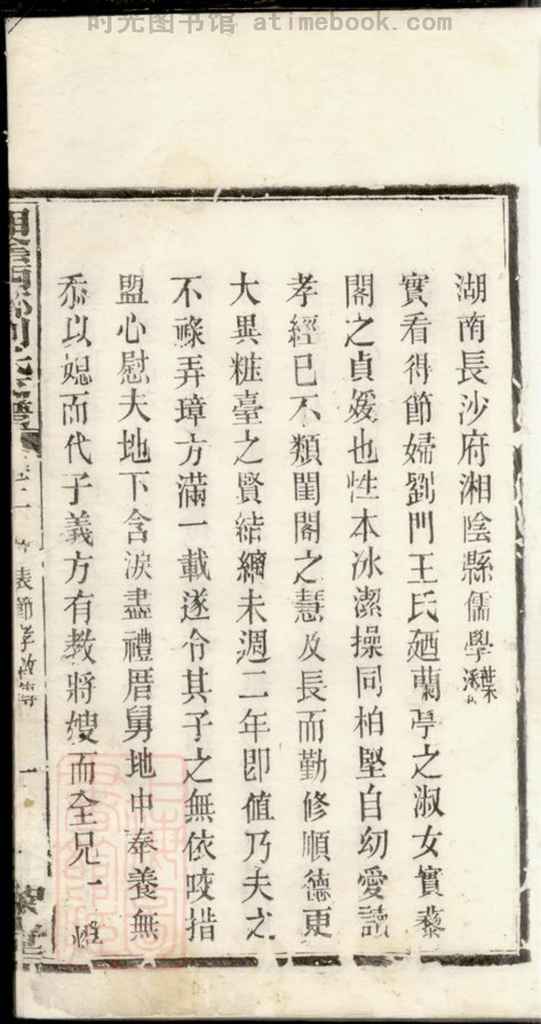 时光图书馆 atimebook.com
湖南長沙府湘陰縣儒學葉
實看得節婦劉門王氏廼蘭亭之淑女實藜
閣之貞媛也性本冰潔操同柏堅自幼愛讀
孝經已不類閨閣之慧及長而勤修順德更
大異粧臺之賢結縭未週二年即值乃夫之
不祿弄璋方滿一載遂令其子之無依咬指
盟心慰夫地下含淚盡禮厝舅地中奉養無
忝以媳而代子義方有教將嫂而全兄一
卷二 表節孝